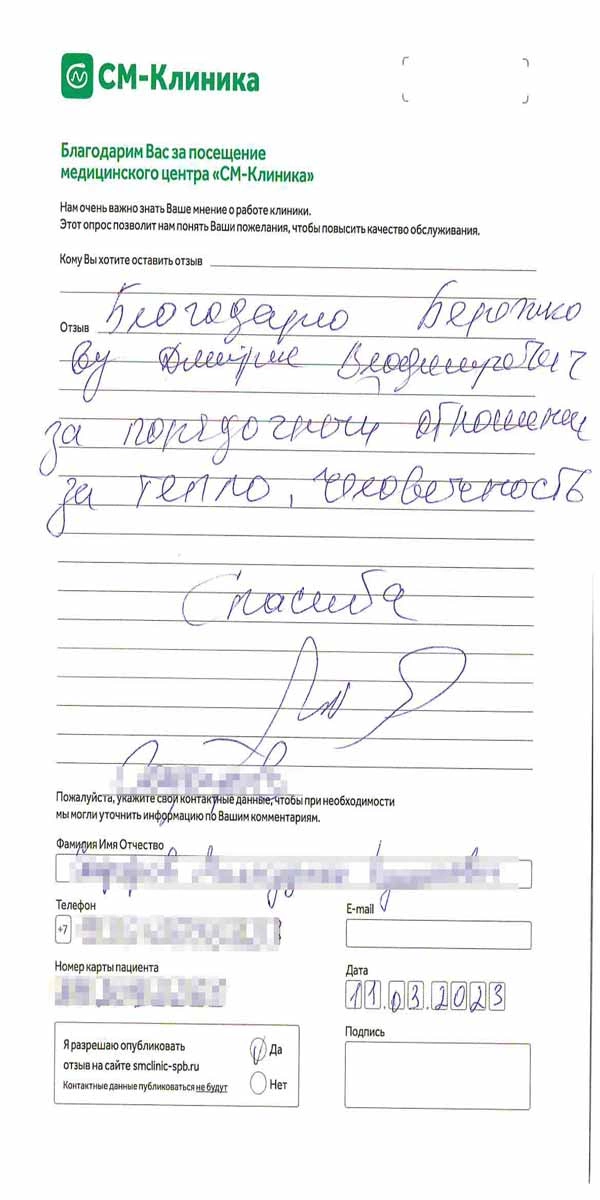 СМ-Клиника
Благодарим Вас за посещение
медицинского центра «СМ-Клиника»
Нам очень важно знать Ваше мнение о работе клиники.
Этот опрос позволит нам понять Ваши пожелания, чтобы повысить качество обслуживания.
Кому Вы хотите оставить отзыв
Отзыв Благодарю
Дмитрию Владимирович
за порядочном отношении
за тепло, человечность
Спасиба
Пожалуйста, укажите свои контактные данные, чтобы при необходимости
мы могли уточнить информацию по Вашим комментариям.
Фамилия Имя Отчество
Телефон
E-mail
+7
Номер карты пациента
Дата
11.03.2023
Я разрешаю опубликовать
отзыв на сайте smclinic-spb.ru
Контактные данные публиковаться не будут
Да
Нет
Подпись